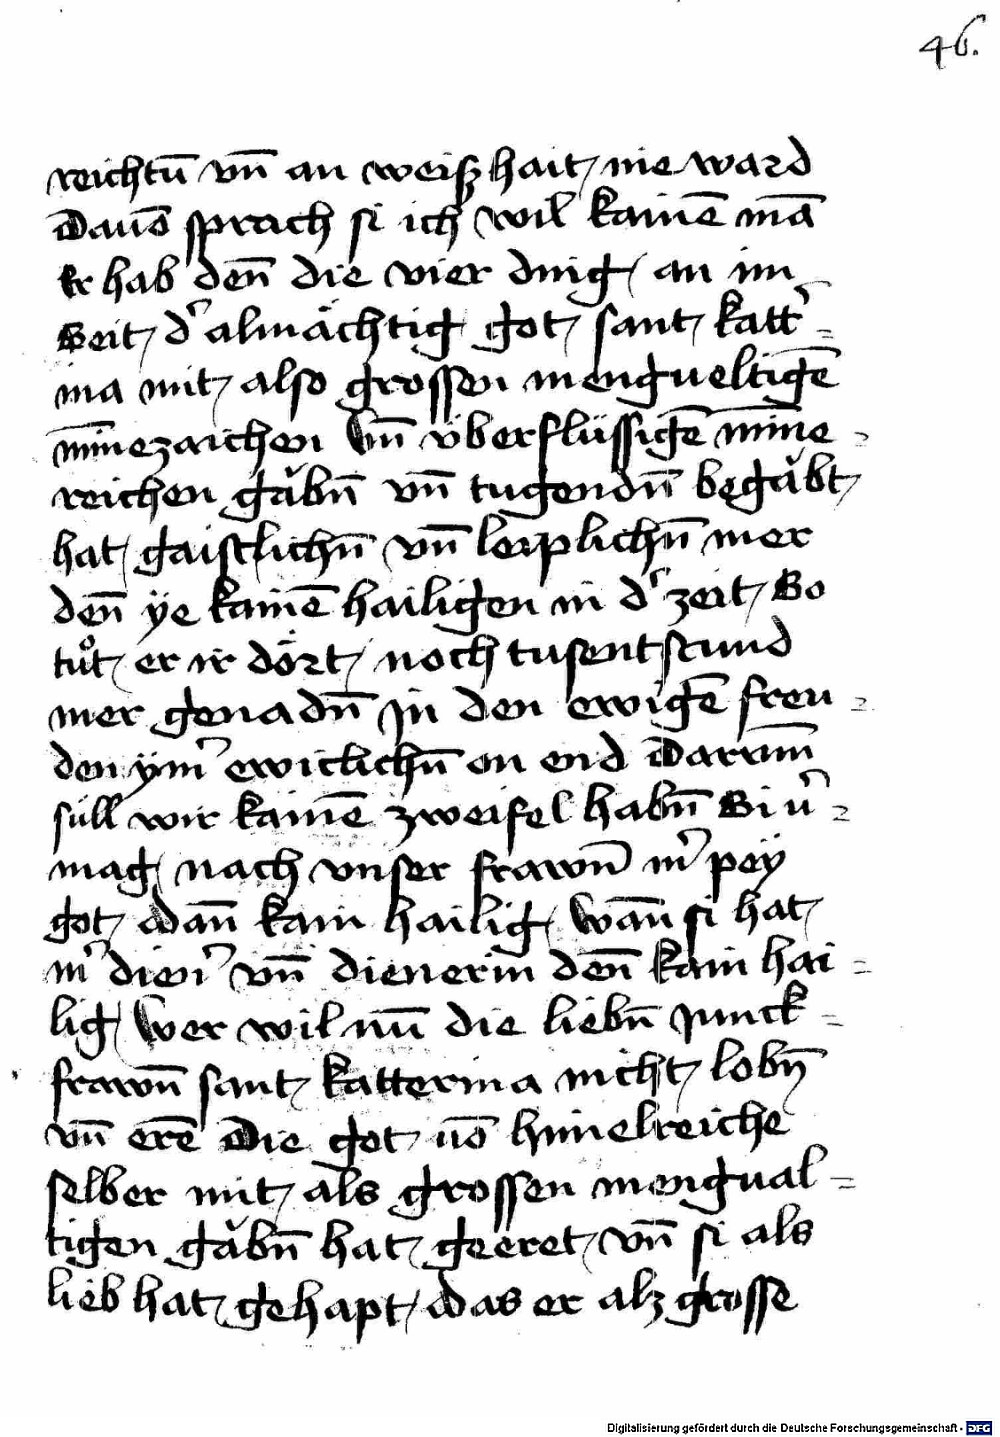 46.
reichtū vn̄ an weiſzhait nie ward
Dauō sprach si ich wil kainē mā
Er hab den̄ die vier ding an im
Seit dʼ almächtig got sant kattʼ=
ina mit also grossen mengueltigē
min̄ezaichen vn̄ v̈berflüssigē min̄e=
reichen gäbn̄ vn̄ tugendn̄ begäbt
hat gaistlichn̄ vn̄ leiplichn̄ mer
den̄ ÿe kainē hailigen in dʼ zeit So
tuͦt er ir dört noch tusentstund
mer genadn̄ in den ewigē freu=
den ÿmʼ ewiclichn̄ on end Darum̄
süll wir kainē zweifel habn̄ Si vʼ=
mag nach vnser frawn̄ mʼ peÿ
got dan̄ kain hailig wan̄ si hat
mʼ dienʼ vn̄ dienerin den̄ kain hai=
lig wer wil nū die liebn̄ junck=
frawn̄ sant katterina nicht lobn̄
vn̄ erē Die got vō himelreiche
selber mit als grossen mengual=
tigen gäbn̄ hat geeret vn̄ si als
lieb hat gehapt das er alz grosse
Digitalisierung gefördert durch die Deutsche Forschungsgemeinschaft - DFG